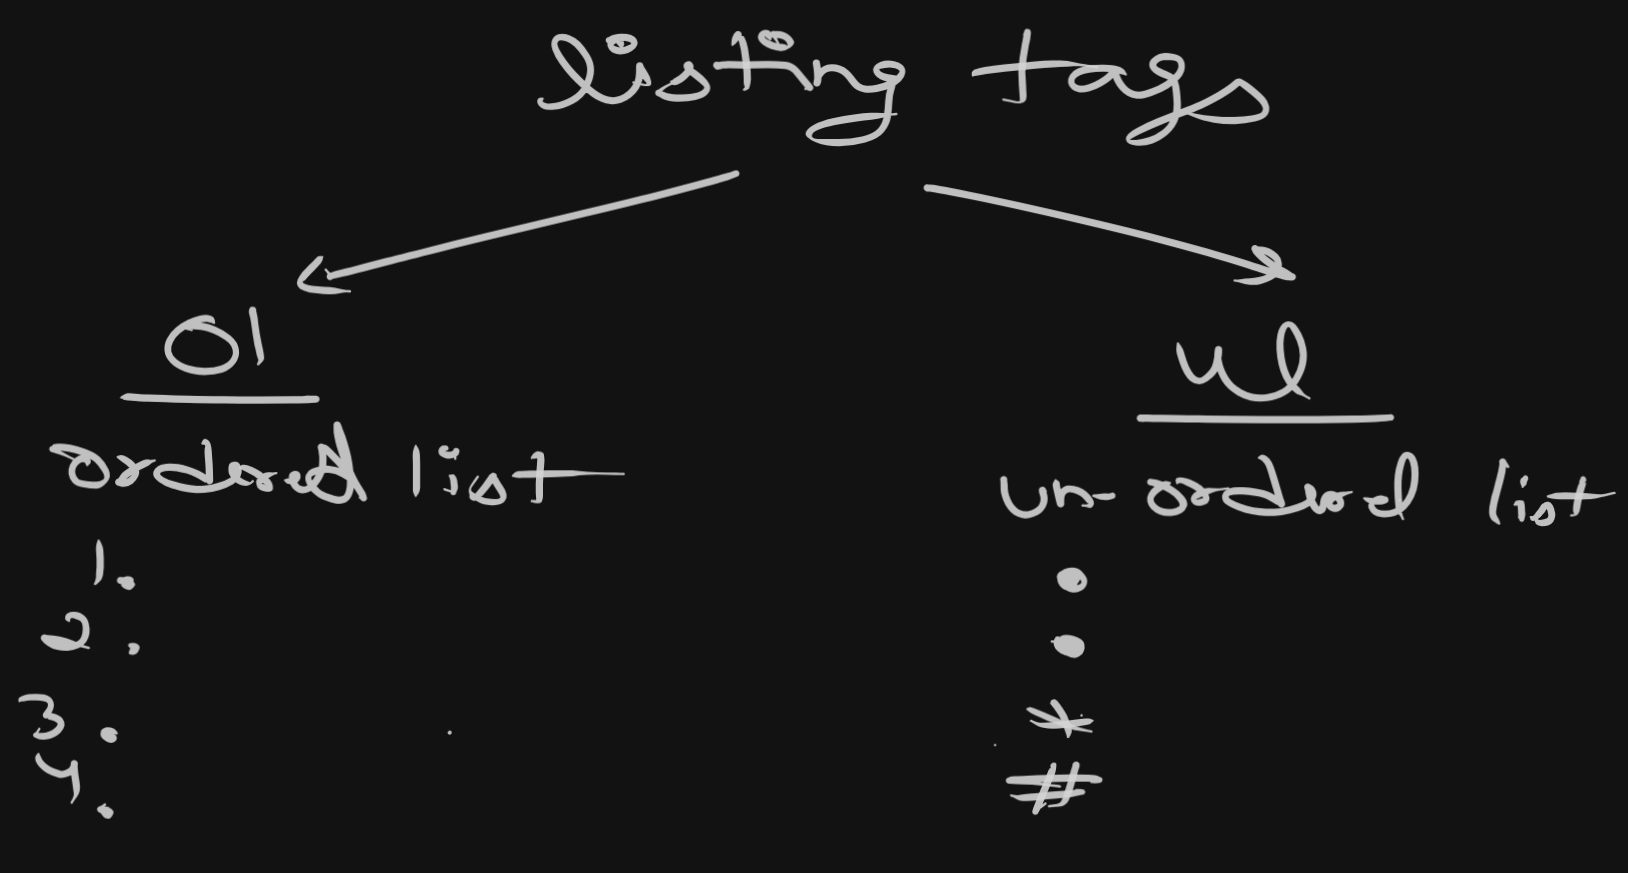 listing tags
ol
ordered list
1.
2.
3.
4.
ul
un-ordered list
•
•
*
#